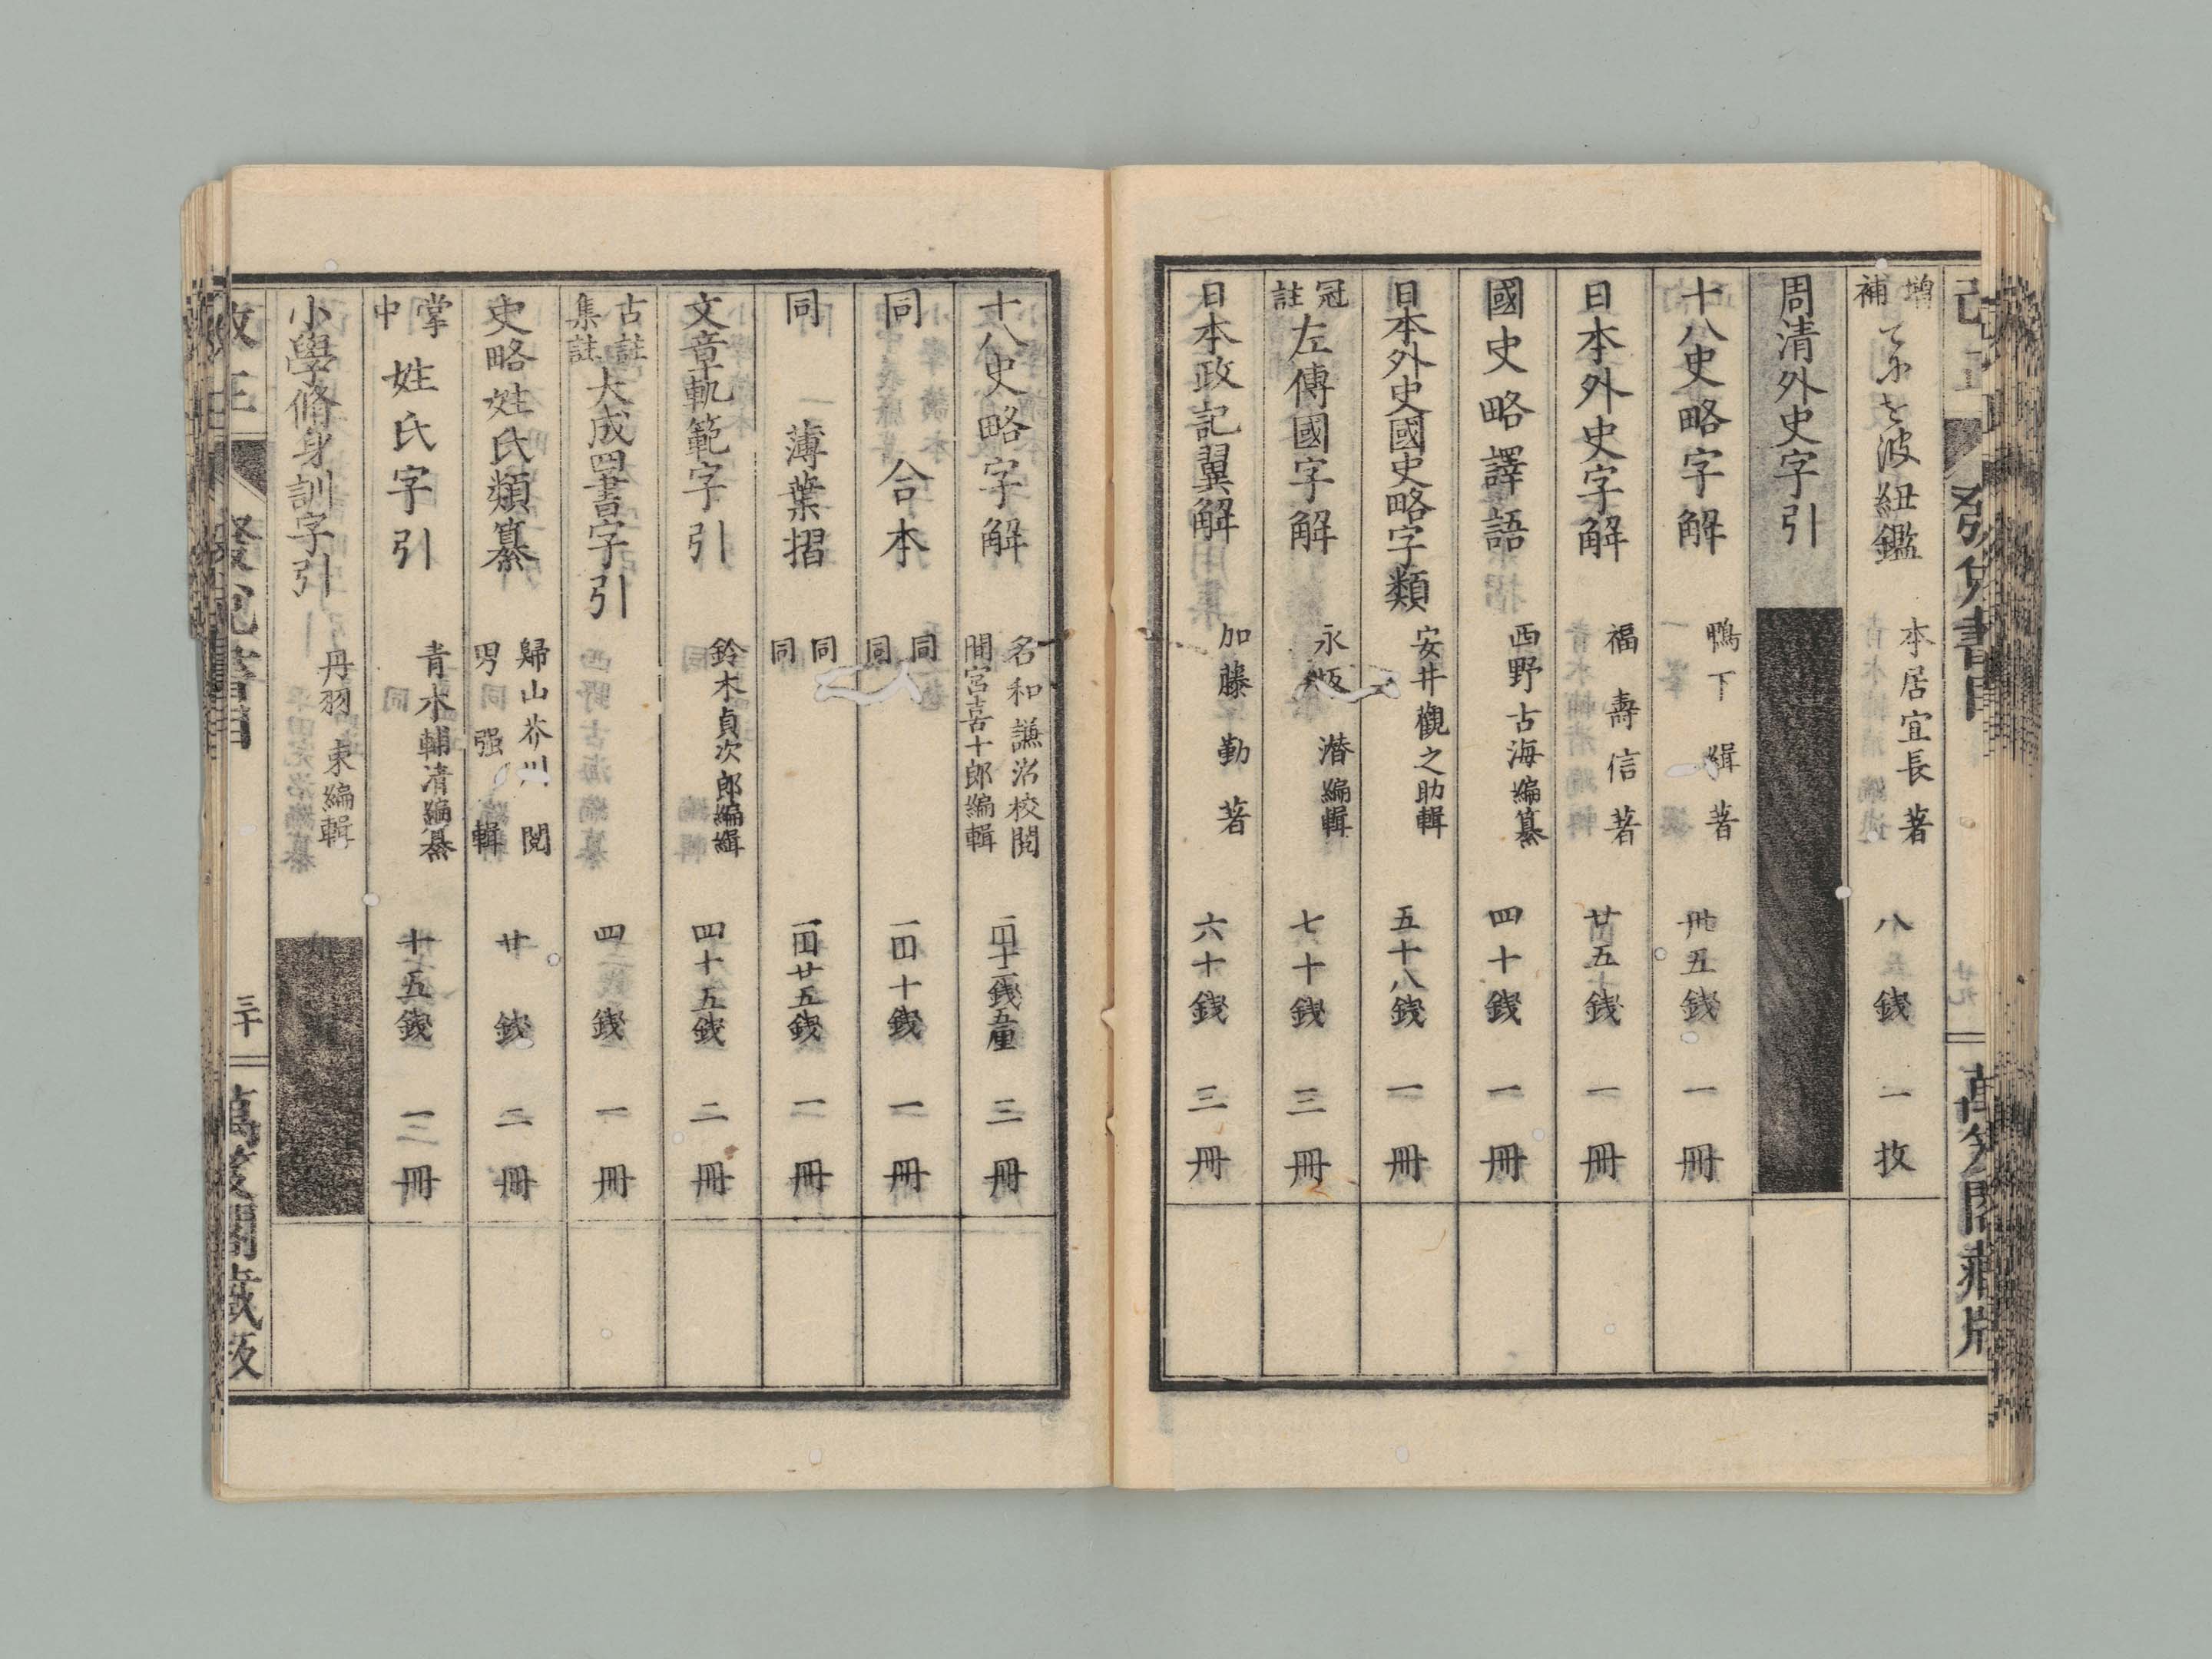 増補 てにをは紐鏡 本居宜長著 八銭 一枚
周清外史字引
十八史略字解 鴨下 緝著 卅五銭 一冊
日本外史字解 福壽信著 廿五銭 一冊
國史略譯語 西野古海編纂 四十銭 一冊
日本外史國史略字類 安井觀之助輯 五十八銭 一冊
冠註 左傳國字解 永坂 潜編輯 七十銭 三冊
日本政記翼解 加藤勤著 六十銭 三冊
十八史略字解 名和謙治校閲 間宮喜十郎編輯 銭五厘 三冊
同 合本 同 同 一円十銭 一冊
同 薄葉摺 同 同 一円廿五銭 一冊
文章軌範字引 鈴木貞次郎編緝 四十五銭 二冊
古註集註 大成四書字引 四 銭 一冊
史略姓氏類纂 歸山芥川閲 強輯 廿銭 二冊
掌中 姓氏字引 青木輔清編纂 十五銭 冊
小學脩身訓字引 丹羽 東編輯
三十